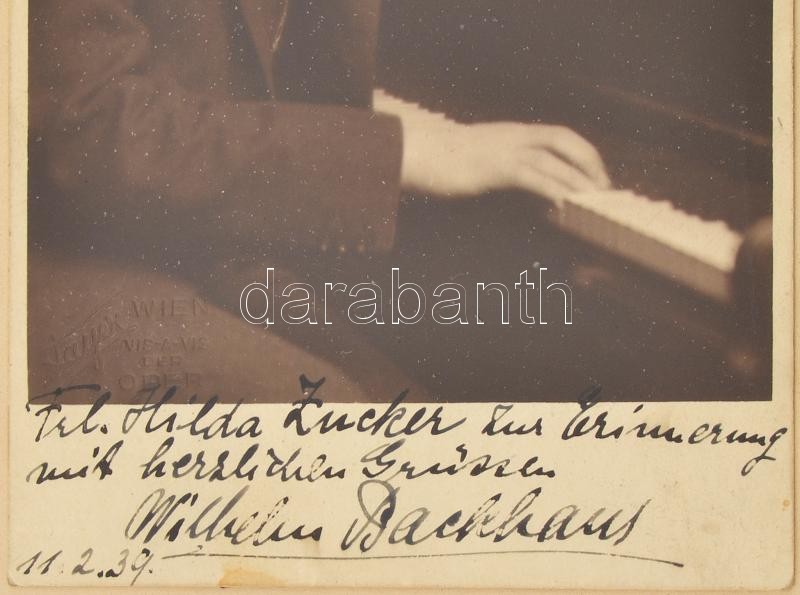 darabanth
WIEN
VIS-A-VIS
DER
OPER
Frl. Hilda Zucker zur Erinnerung
mit herzlichen Grüssen
Wilhelm Backhaus
11.2.39.